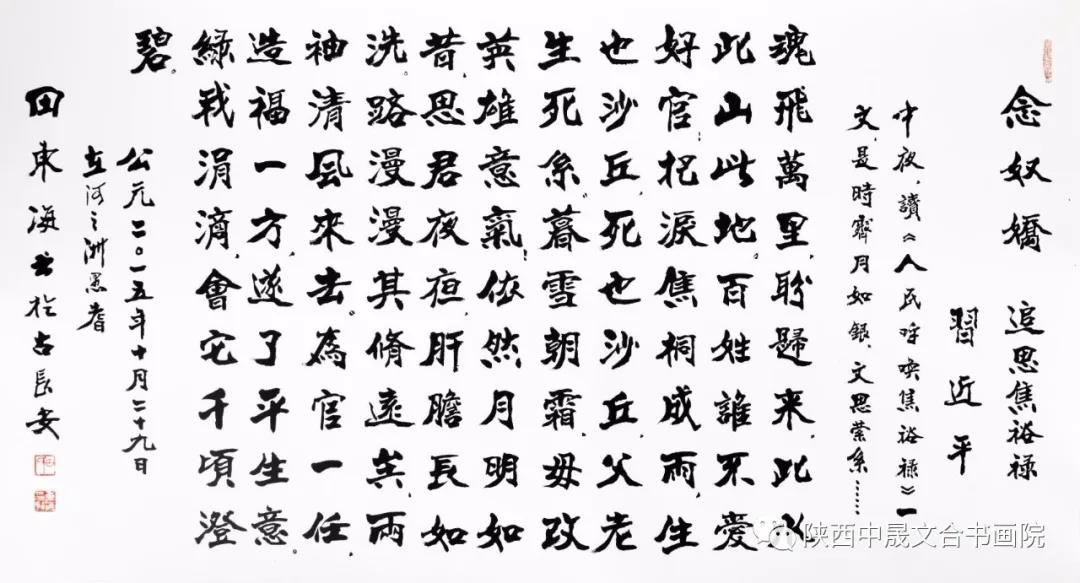 念奴嬌 追思焦裕禄
習近平
中夜，讀《人民呼唤焦裕禄》一
文，是時霽月如銀，文思縈系……
魂飛萬里，盼歸来，此水
此山此地。百姓誰不愛
好官，把淚焦桐成雨，生
也沙丘，死也沙丘，父老
生死系。暮雪朝霜，毋改
英雄意氣，依然月明如
昔，思君夜夜，肝膽長如
洗。路漫漫其脩遠矣，兩
袖清風來去。為官一任，
造福一方，遂了平生意。
綠我涓滴，會它千頃澄
碧。
公元二〇一五年十月二十九日
在河之洲愚者
田東海书於古長安
陕西中晟文合书画院